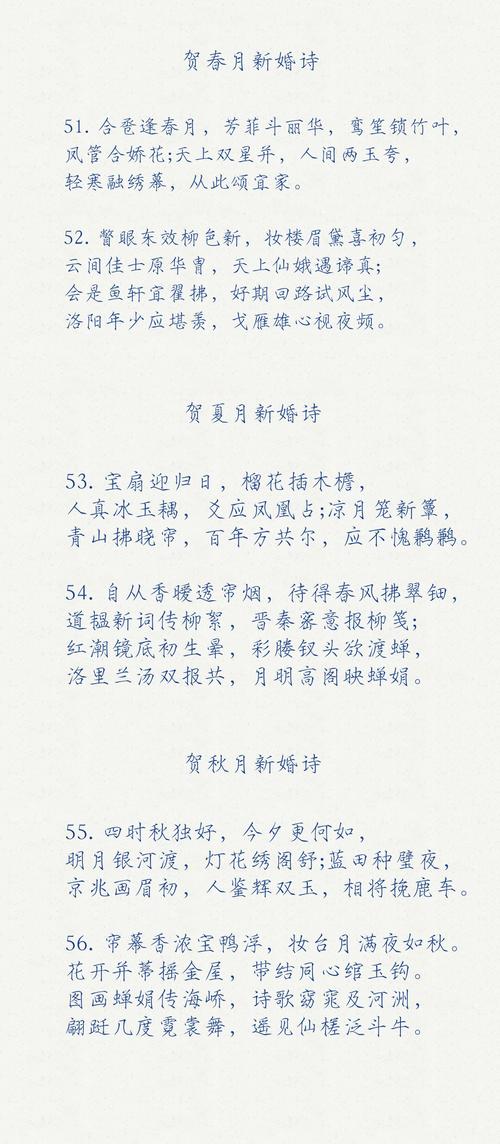 贺春月新婚诗
51. 合卺逢春月，芳菲斗丽华，鸾笙锁竹叶，
凤管合娇花;天上双星并，人间两玉夸，
轻寒融绣幕，从此颂宜家。
52. 瞥眼东效柳色新，妆楼眉黛喜初匀，
云间佳士原华胄，天上仙娥遇谛真;
会是鱼轩宜翟拂，好期回路试风尘，
洛阳年少应堪羡，弋雁雄心视夜频。
贺夏月新婚诗
53. 宝扇迎归日，榴花插木檐，
人真冰玉耦，爻应凤凰占;凉月笼新簟，
青山拂晓帘，百年方共尔，应不愧鹣鹣。
54. 自从香暧透帘烟，待得春风拂翠钿，
道韫新词传柳絮，晋秦密意报柳笺;
红潮镜底初生晕，彩胜钗头欲渡蝉，
洛里兰汤双报共，月明高阁映蝉娟。
贺秋月新婚诗
55. 四时秋独好，今夕更何如，
明月银河渡，灯花绣阁舒;蓝田种璧夜，
京兆画眉初，人鉴辉双玉，相将挽鹿车。
56. 帘幕香浓宝鸭浮，妆台月满夜如秋。
花开并蒂摇金屋，带结同心绾玉钩。
图画蝉娟传海峤，诗歌窈窕及河洲，
翩跹几度霓裳舞，遥见仙槎泛斗牛。